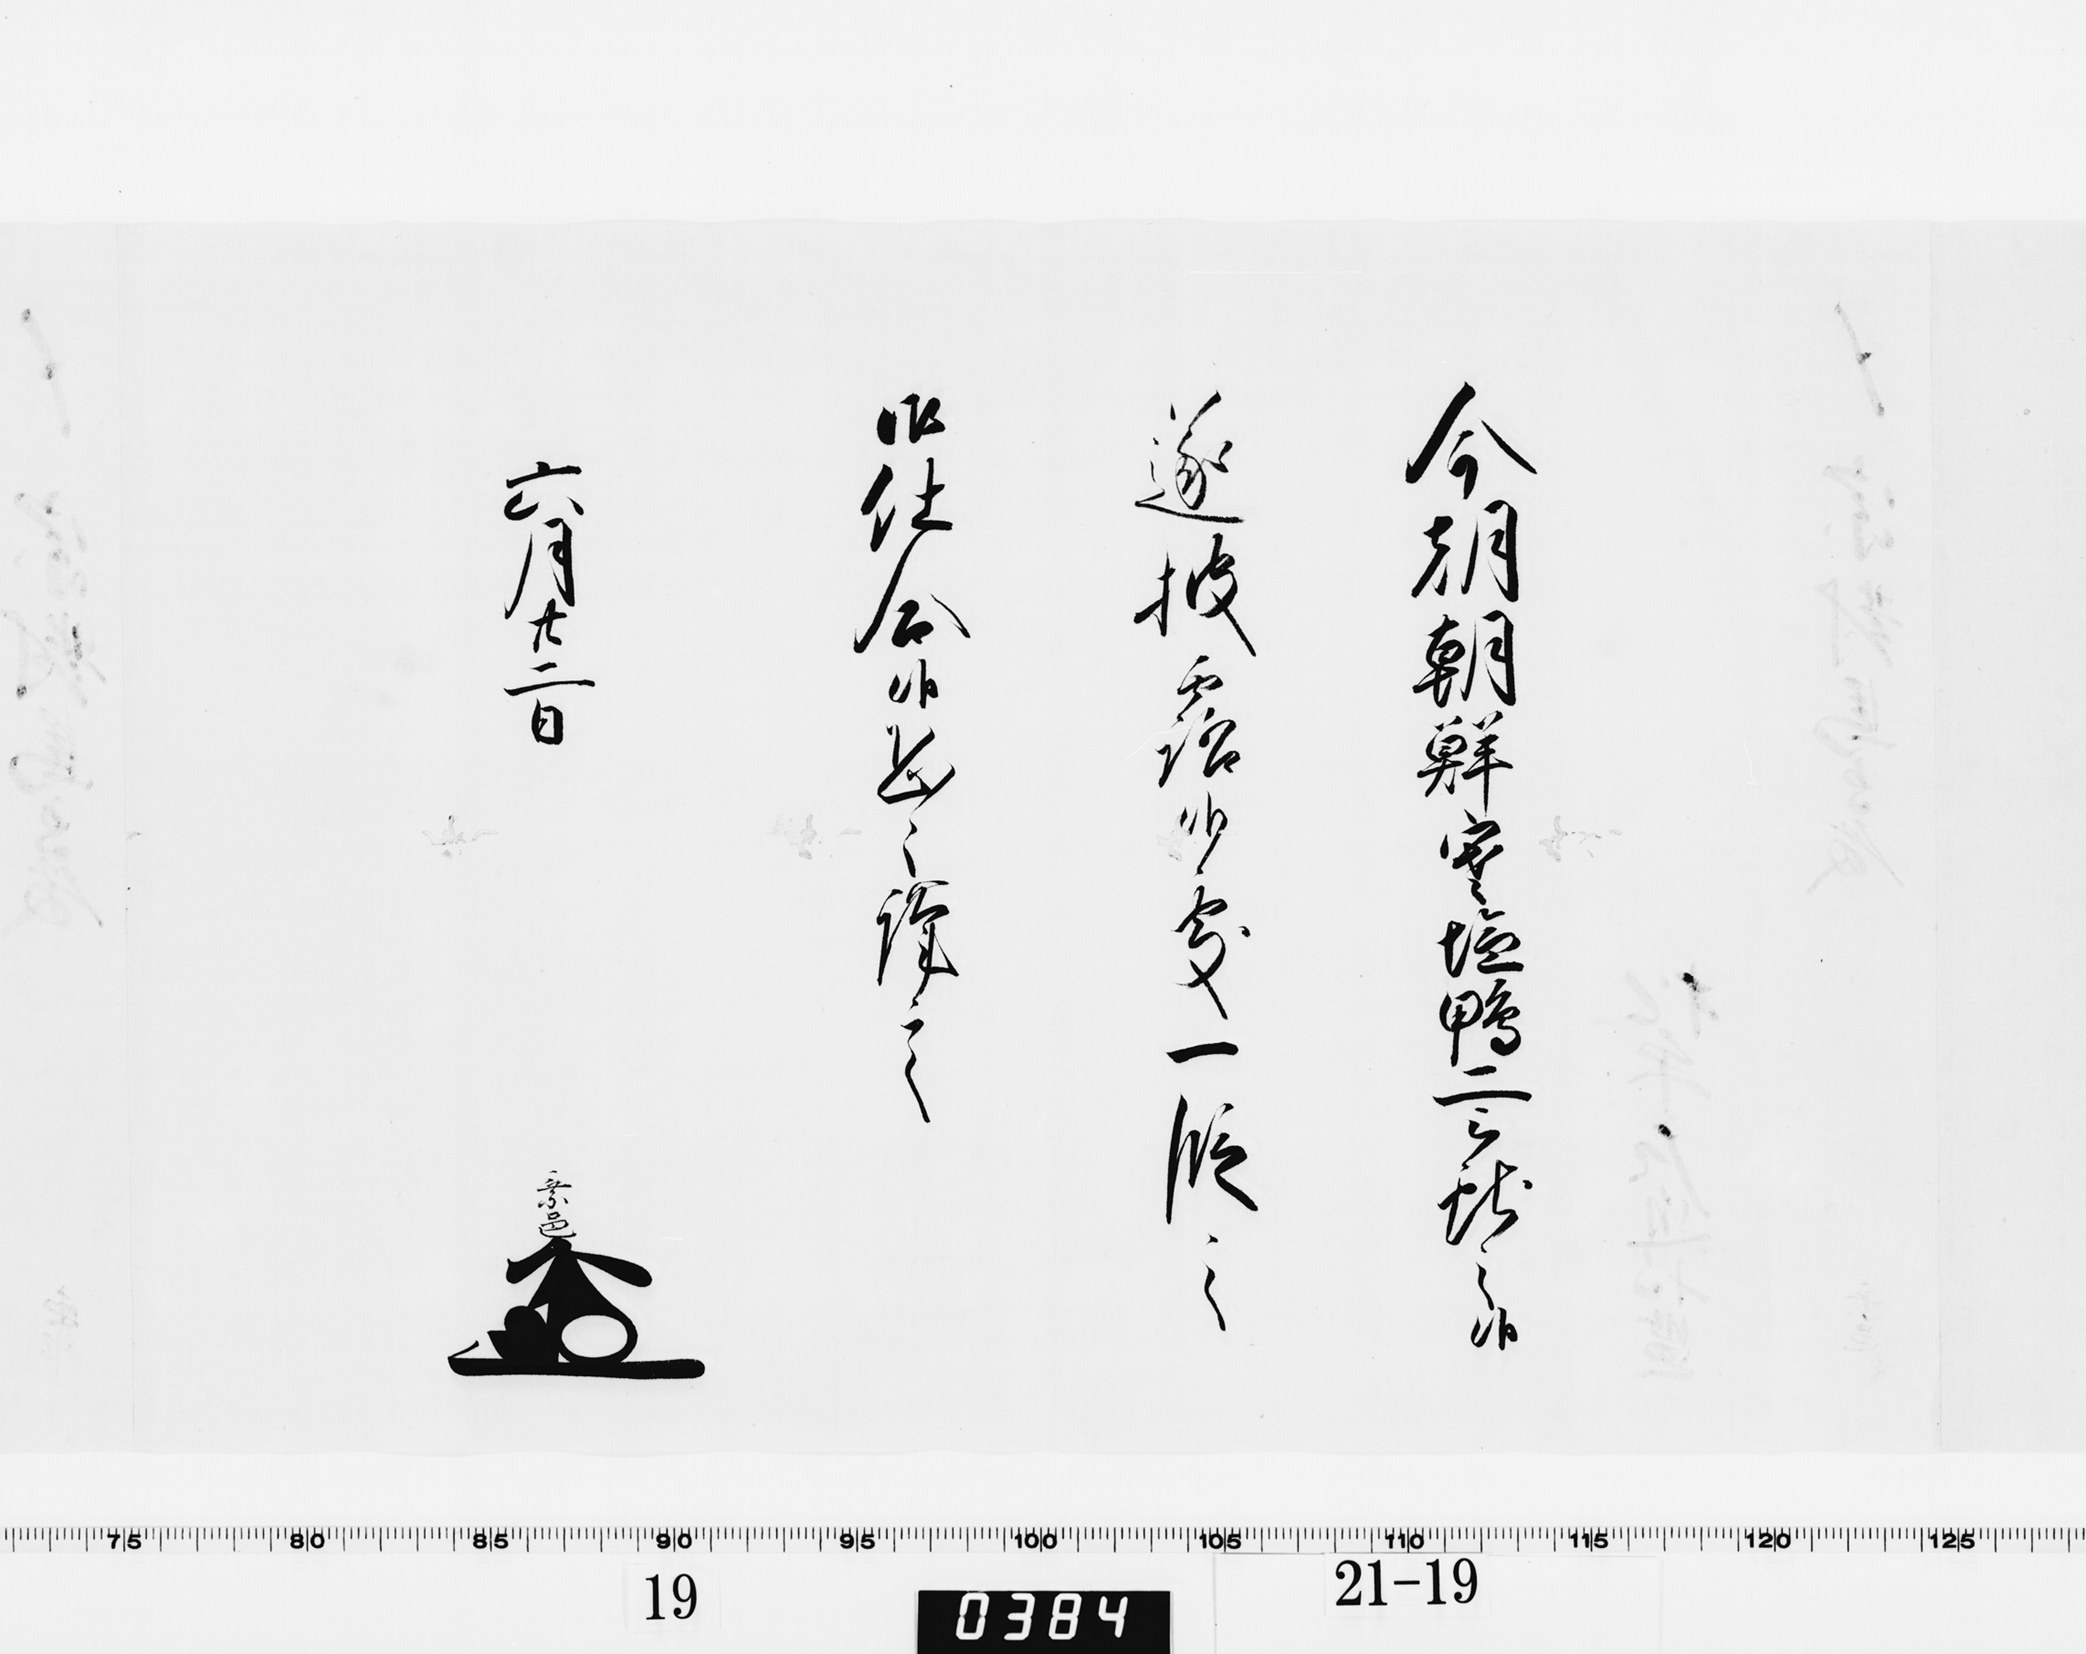 今朝朝鮮寒塩鴨二被献之候
遂披露候処一段之
御仕合候恐々謹言
六月廿二日
乗邑
75 80 85 90 95 100 105 110 115 120 125
19
0384
21-19